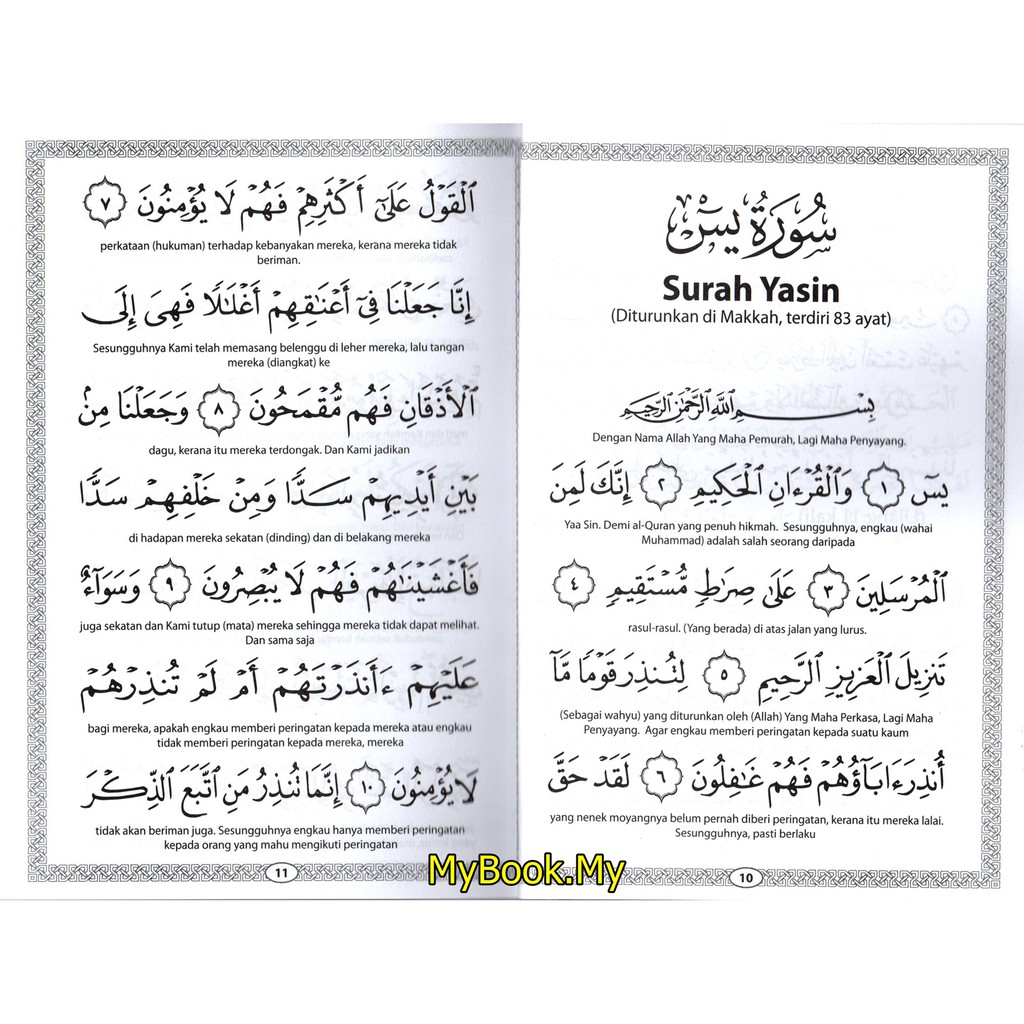 سُورَةُ يسٓ
Surah Yasin
(Diturunkan di Makkah, terdiri 83 ayat)
بِسْمِ ٱللَّهِ ٱلرَّحْمَٰنِ ٱلرَّحِيمِ
Dengan Nama Allah Yang Maha Pemurah, Lagi Maha Penyayang.
يسٓ ١ وَٱلْقُرْءَانِ ٱلْحَكِيمِ ٢ إِنَّكَ لَمِنَ
Yaa Sin. Demi al-Quran yang penuh hikmah. Sesungguhnya, engkau (wahai
Muhammad) adalah salah seorang daripada
ٱلْمُرْسَلِينَ ٣ عَلَىٰ صِرَٰطٍ مُّسْتَقِيمٍ ٤
rasul-rasul. (Yang berada) di atas jalan yang lurus.
تَنزِيلَ ٱلْعَزِيزِ ٱلرَّحِيمِ ٥ لِتُنذِرَ قَوْمًا مَّآ
(Sebagai wahyu) yang diturunkan oleh (Allah) Yang Maha Perkasa, Lagi Maha
Penyayang. Agar engkau memberi peringatan kepada suatu kaum
أُنذِرَ ءَابَآؤُهُمْ فَهُمْ غَٰفِلُونَ ٦ لَقَدْ حَقَّ
yang nenek moyangnya belum pernah diberi peringatan, kerana itu mereka lalai.
Sesungguhnya, pasti berlaku
10
ٱلْقَوْلُ عَلَىٰٓ أَكْثَرِهِمْ فَهُمْ لَا يُؤْمِنُونَ ٧
perkataan (hukuman) terhadap kebanyakan mereka, kerana mereka tidak
beriman.
إِنَّا جَعَلْنَا فِىٓ أَعْنَٰقِهِمْ أَغْلَٰلًا فَهِىَ إِلَى
Sesungguhnya Kami telah memasang belenggu di leher mereka, lalu tangan
mereka (diangkat) ke
ٱلْأَذْقَانِ فَهُم مُّقْمَحُونَ ٨ وَجَعَلْنَا مِنۢ
dagu, kerana itu mereka terdongak. Dan Kami jadikan
بَيْنِ أَيْدِيهِمْ سَدًّا وَمِنْ خَلْفِهِمْ سَدًّا
di hadapan mereka sekatan (dinding) dan di belakang mereka
فَأَغْشَيْنَٰهُمْ فَهُمْ لَا يُبْصِرُونَ ٩ وَسَوَآءٌ
juga sekatan dan Kami tutup (mata) mereka sehingga mereka tidak dapat melihat.
Dan sama saja
عَلَيْهِمْ ءَأَنذَرْتَهُمْ أَمْ لَمْ تُنذِرْهُمْ
bagi mereka, apakah engkau memberi peringatan kepada mereka atau engkau
tidak memberi peringatan kepada mereka, mereka
لَا يُؤْمِنُونَ ١٠ إِنَّمَا تُنذِرُ مَنِ ٱتَّبَعَ ٱلذِّكْرَ
tidak akan beriman juga. Sesungguhnya engkau hanya memberi peringatan
kepada orang yang mahu mengikuti peringatan
11
MyBook.My